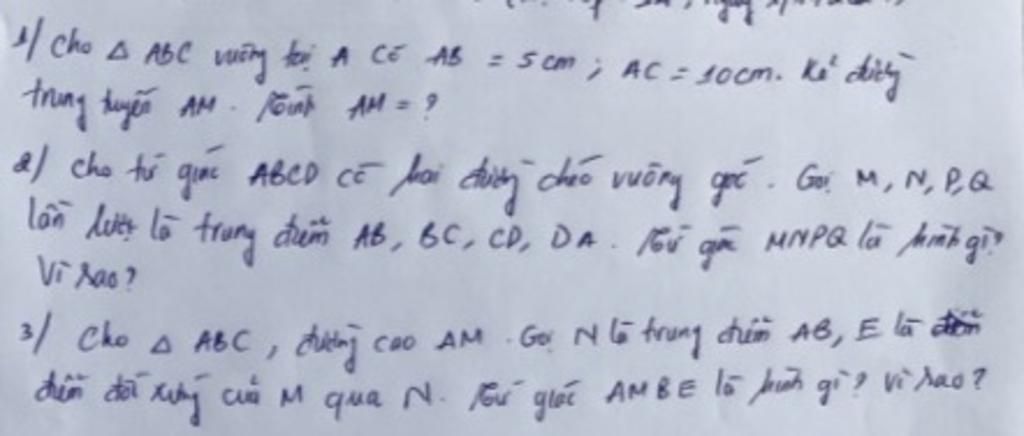 1/ Cho △ ABC vuông tại A có AB = 5 cm ; AC = 10cm. Kẻ đường
trung tuyến AM. Tính AM = ?
2/ Cho tứ giác ABCD có hai đường chéo vuông góc. Gọi M, N, P, Q
lần lượt là trung điểm AB, BC, CD, DA. Tứ giác MNPQ là hình gì?
Vì sao?
3/ Cho △ ABC, đường cao AM. Gọi N là trung điểm AB, E là
điểm đối xứng của M qua N. Tứ giác AMBE là hình gì? Vì sao?